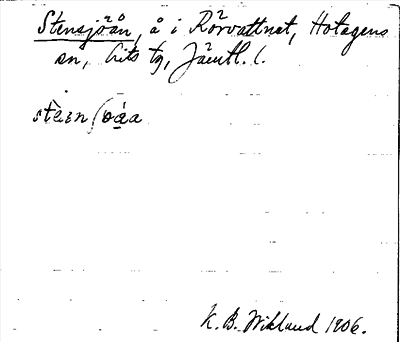 Stensjöån, å i Rörvattnet, Hotagens
sn, Lits tg, Jämtl. l.
K. B. Wiklund 1906.